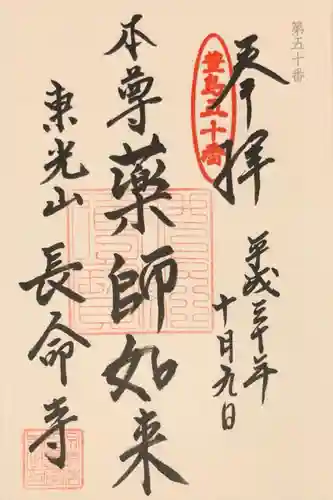 第五十番
奉拝
豊島五十番
平成三十年
十月九日
本尊薬師如来
東光山
長命寺